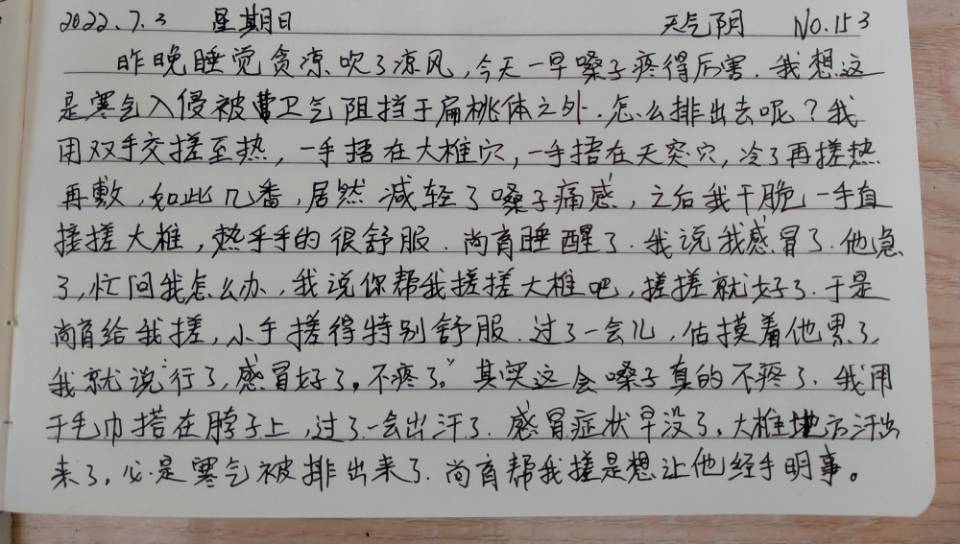 2022.7.3 星期日 天气阴 No.153
昨晚睡觉贪凉吹了凉风,今天一早嗓子疼得厉害.我想这
是寒气入侵被卫气阻挡于扁桃体之外.怎么排出去呢?我
用双手交搓至热,一手捂在大椎穴,一手捂在天突穴,冷了再搓热
再敷,如此几番,居然减轻了嗓子痛感,之后我干脆一手直
接搓大椎,热乎乎的很舒服.尚育睡醒了.我说我感冒了.他急
了,忙问我怎么办,我说你帮我搓搓大椎吧,搓搓就好了.于是
尚育给我搓,小手搓得特别舒服.过了一会儿,估摸着他累了,
我就说“行了,感冒好了。不疼了。”其实这会嗓子真的不疼了.我用
干毛巾搭在脖子上,过了一会出汗了.感冒症状早没了。大椎地方汗出
来了,必是寒气被排出来了.尚育帮我搓是想让他经手明事。